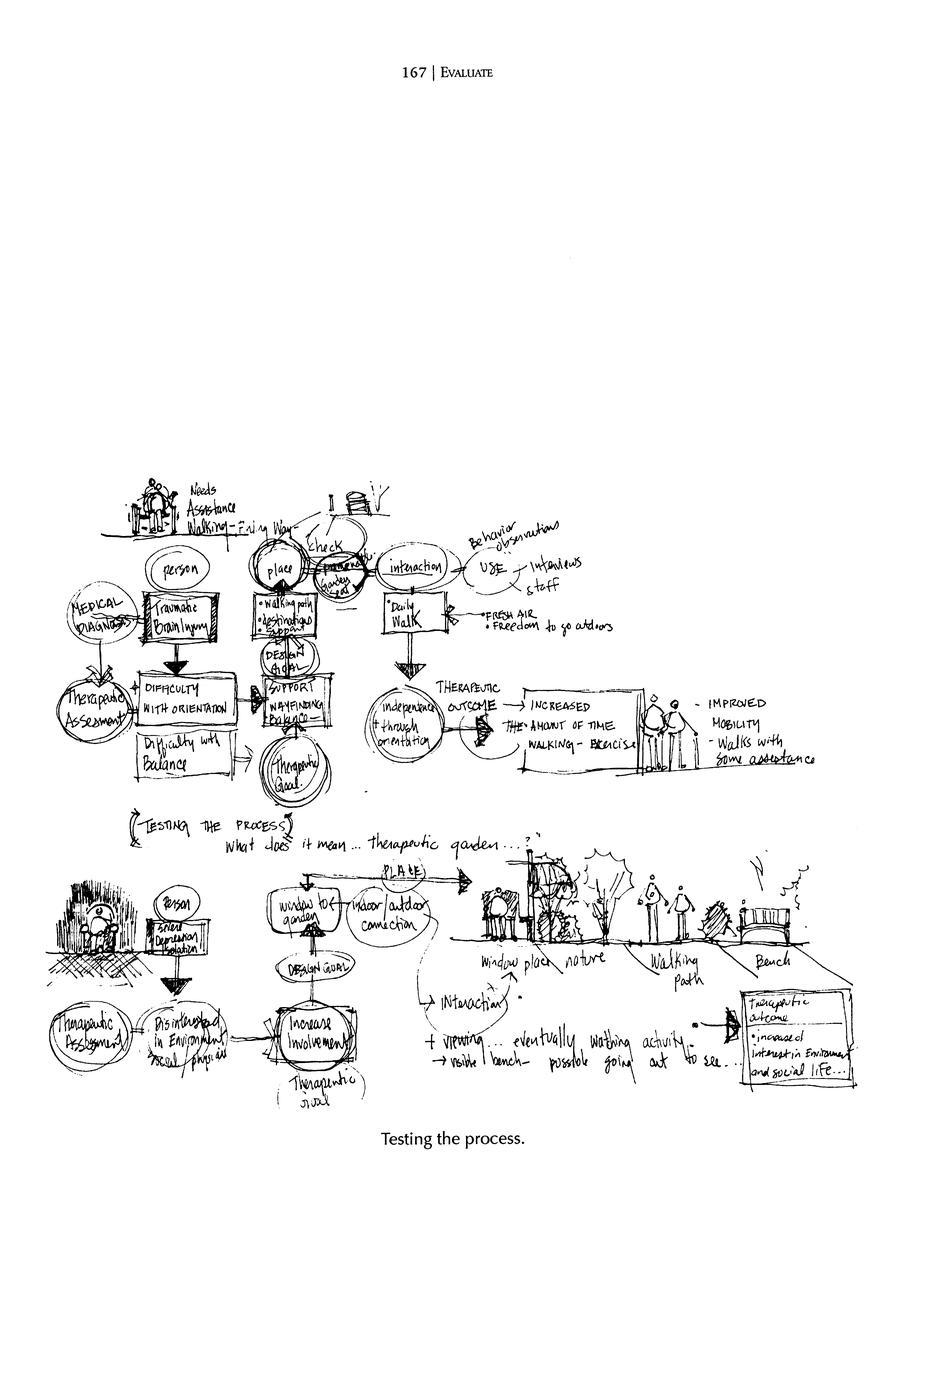 167 | EVALUATE
Needs
Assistance
Walking-
person
place
check
Garden
interaction
Behavior
observations
USE
Interviews
staff
MEDICAL
DIAGNOSIS
Traumatic
Brain Injury
• Walking path
• destinations
• support
• Daily
Walk
• FRESH AIR
• FREEDOM to go outdoors
DESIGN
GOAL
Therapeutic
Assesment
DIFFICULTY
WITH ORIENTATION
SUPPORT
WAYFINDING
Balance
independence
through
orientation
THERAPEUTIC
OUTCOME → INCREASED
THE AMOUNT OF TIME
WALKING - Exercise
- IMPROVED
MOBILITY
- Walks with
some assistance
Difficulty with
Balance
Therapeutic
Goal.
(TESTING THE PROCESS)
What does it mean ... therapeutic garden ...?
PLACE
Person
window to
garden
indoor/outdoor
connection
Depression
Isolation
DESIGN GOAL
window place
nature
Walking
path
Bench
Therapeutic
Assessment
Disinterested
in Environment
social physical
Increase
Involvement
INteraction
Therapeutic
outcome
• increased
interest in Environment
and social life...
+ viewing ... eventually walking activity
→ visible bench - possible going out to see...
Therapeutic
Testing the process.